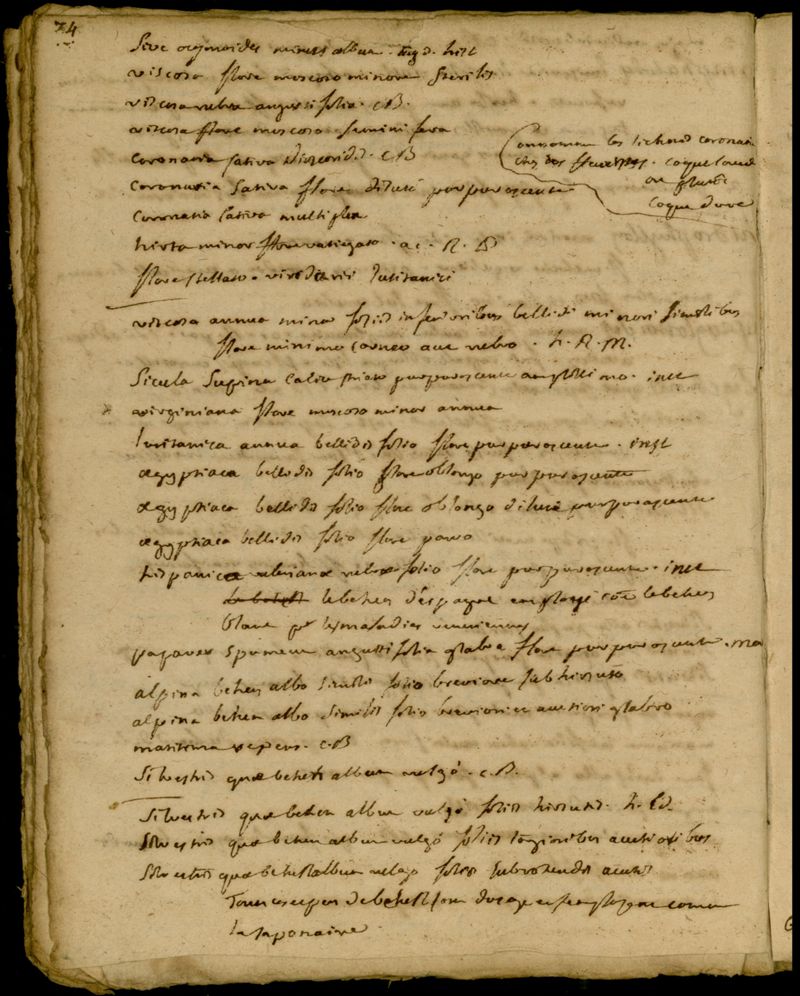 74
sive ocymoides minus album. hist
viscosa flore muscoso minore sterilis
viscosa rubra angustifolia. c B.
viscosa flore muscoso seminifera
coronaria sativa dioscoridis. c B
coronaria sativa flore diluté purpurascente
coronaria sativa multiplex
hirta minor flore variegato. ac. R. P
flore stellato. viridarii lusitanici
on nomme les lichnis coronaria
ches les fleuristes. coquelourde
ou plutôt
coque
viscosa annua minor foliis inferioribus bellidi minori similibus
flore minimo carneo aut rubro. h. R. M.
Sicula supina calice striato purpurascente amplissimo. inst
virginiana flore muscoso minor annua
lusitanica annua bellidis folio flore purpurascente. inst
ægyptiaca bellidis folio flore oblongo purpurascente
ægyptiaca bellidis folio flore oblongo diluté purpurascente
ægyptiaca bellidis folio flore parvo
hispanica valerianæ rubræ folio flore purpurascente. inst
le behen d'espagne employé come le behen
blanc pr les maladies veneriennes
papaver spumeum angustifolia glabra flore purpurascente.
alpina behen albo similis folio breviore subhirsuto
alpina behen albo similis foliis breviori et acutiori glabro
maritima repens. c B
Silvestris quæ behen album vulgó. c. B.
Silvestris quæ behen album vulgó foliis hirsutis. h.
Silvestris quæ behen album vulgó foliis longioribus acutioribus
Silvestris quæ behen album vulgo foliis subrotundis acutis
Toutes ces especes de behen sont d'usage et s'employent come
la saponaire.